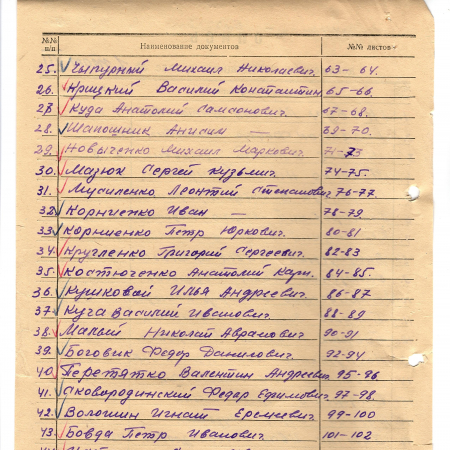 №№ п/п Наименование документов №№ листов
25. Чыпурный Михаил Николаевич. 63-64.
26. Крицкий Василий Константин. 65-66.
27. Куда Анатолий Самсонович. 67-68.
28. Шапошник Анисим — 69-70.
29. Новыченко Михаил Маркович. 71-73
30. Мазюк Сергей Кузьмич. 74-75.
31. Мусиленко Леонтий Степанович 76-77.
32. Корниенко Иван — 78-79.
33. Корниенко Пётр Юркович. 80-81
34. Кругленко Григорий Сергеевич. 82-83
35. Костюченко Анатолий Карп. 84-85.
36. Кушковой Илья Андреевич. 86-87
37. Куча Василий Иванович. 88-89
38. Малый Николай Абрамович 90-91
39. Боговик Федор Данилович. 92-94
40. Перетятко Валентин Андреевич. 95-96
41. Сковородинский Федор Ефимович. 97-98.
42. Волошин Игнат Еремеевич 99-100
43. Бовда Петр Иванович. 101-102